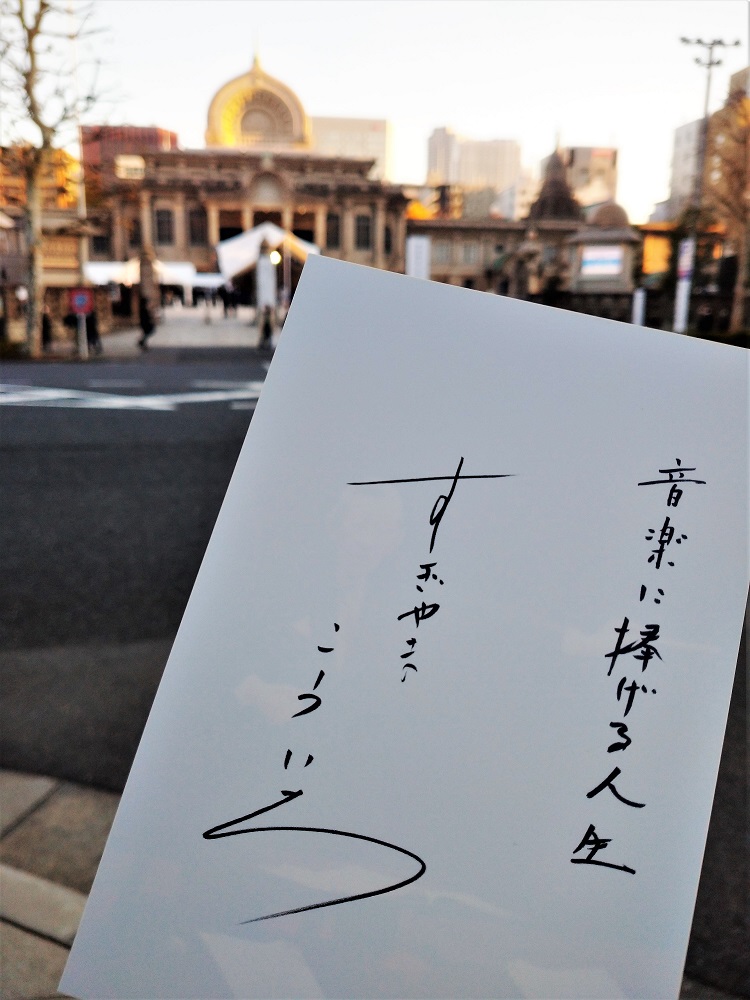 音楽に捧げる人生
すぎやま
こういち